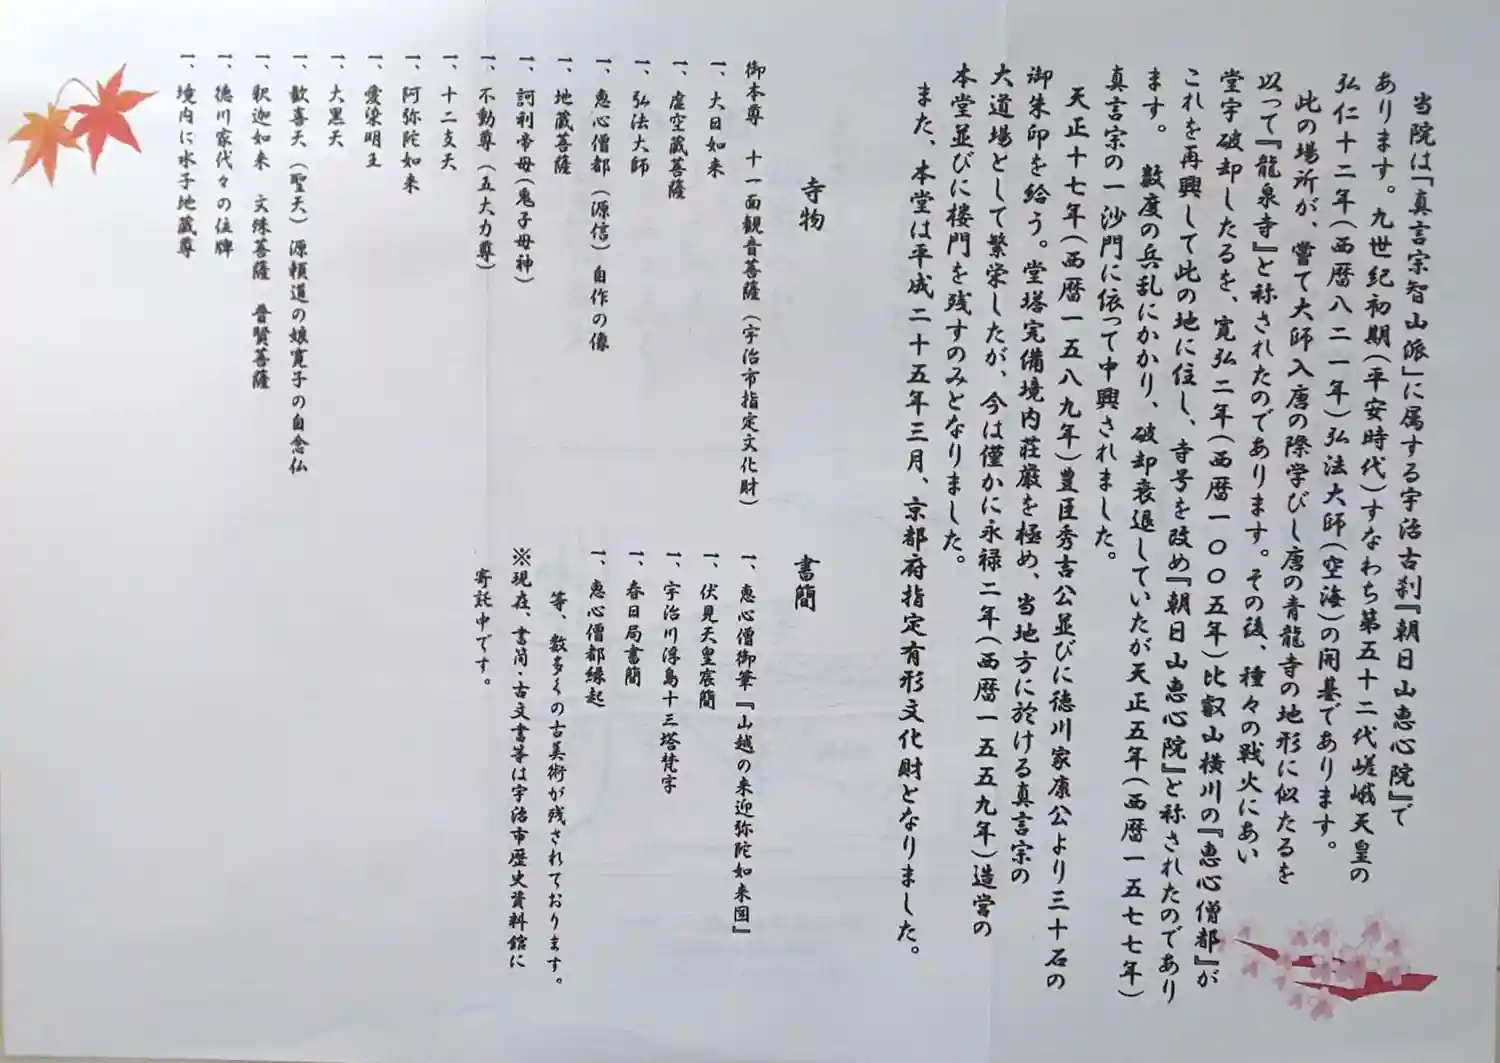 当院は「真言宗智山派」に属する宇治古刹『朝日山恵心院』で
あります。九世紀初期(平安時代)すなわち第五十二代嵯峨天皇の
弘仁十二年(西暦八二一年)弘法大師(空海)の開基であります。
此の場所が、嘗て大師入唐の際学びし唐の青龍寺の地形に似たるを
以って『龍泉寺』と称されたのであります。その後、種々の戦火にあい
堂宇破却したるを、寛弘二年(西暦一〇〇五年)比叡山横川の『恵心僧都』が
これを再興して此の地に住し、寺号を改め『朝日山恵心院』と称されたのであり
ます。 数度の兵乱にかかり、破却衰退していたが天正五年(西暦一五七七年)
真言宗の一沙門に依って中興されました。
天正十七年(西暦一五八九年)豊臣秀吉公並びに徳川家康公より三十石の
御朱印を給う。堂塔完備境内荘厳を極め、当地方に於ける真言宗の
大道場として繁栄したが、今は僅かに永禄二年(西暦一五五九年)造営の
本堂並びに楼門を残すのみとなりました。
また、本堂は平成二十五年三月、京都府指定有形文化財となりました。
寺物
御本尊 十一面観音菩薩(宇治市指定文化財)
一、大日如来
一、虚空蔵菩薩
一、弘法大師
一、恵心僧都(源信)自作の像
一、地蔵菩薩
一、訶利帝母(鬼子母神)
一、不動尊(五大力尊)
一、十二支天
一、阿弥陀如来
一、愛染明王
一、大黒天
一、歓喜天(聖天)源頼道の娘寛子の自念仏
一、釈迦如来 文殊菩薩 普賢菩薩
一、徳川家代々の位牌
一、境内に水子地蔵尊
書簡
一、恵心僧御筆『山越の来迎弥陀如来図』
一、伏見天皇宸簡
一、宇治川浮島十三塔梵字
一、春日局書簡
一、恵心僧都縁起
等、数多くの古美術が残されております。
※現在、書简・古文書等は宇治市歴史資料館に
寄託中です。